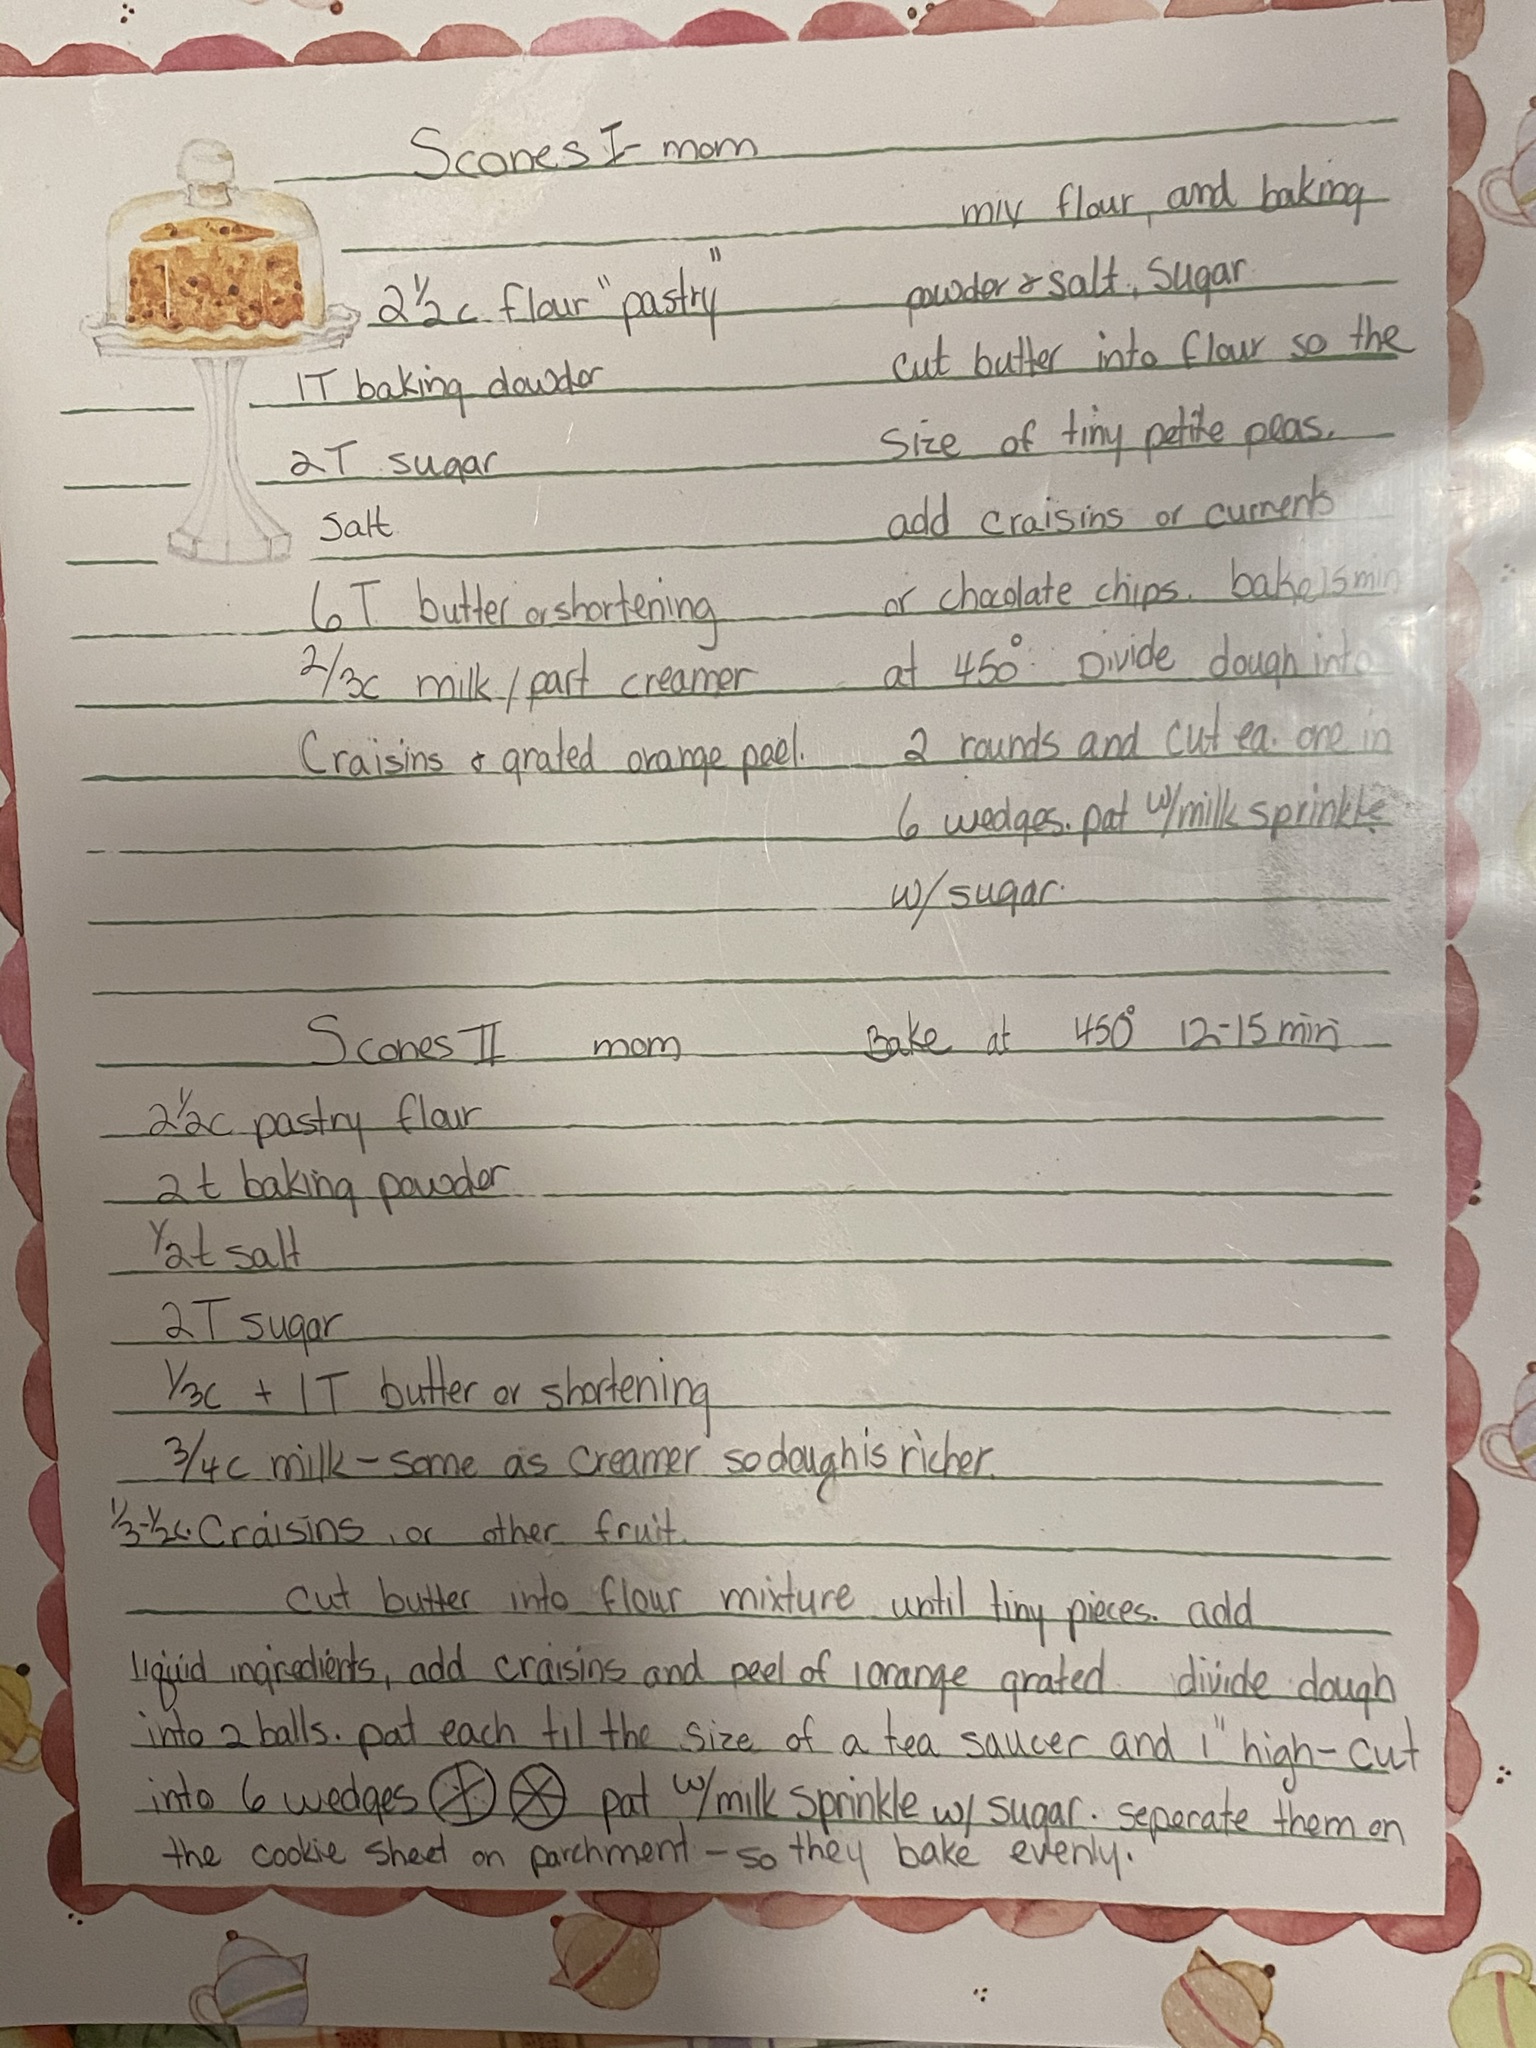 Scones I- mom
2 1/2 c flour "pastry"
1T baking dowder
2T sugar
Salt
6T butter or shortening
2/3c milk/part creamer
Craisins & grated orange peel.
mix flour, and baking
powder & salt, sugar
cut butter into flour so the
size of tiny petite peas.
add craisins or currents
or chocolate chips. bake 15 min
at 450° Divide dough into
2 rounds and cut ea. one in
6 wedges. pat w/milk sprinkle
w/ sugar.
Scones II mom Bake at 450° 12-15 min
2 1/2c pastry flour
2t baking powder
1/2t salt
2T sugar
1/3c + 1T butter or shortening
3/4c milk - some as creamer so dough is richer.
1/3-1/2c. Craisins, or other fruit.
cut butter into flour mixture until tiny pieces. add
liquid ingredients, add craisins and peel of 1 orange grated divide dough
into 2 balls. pat each til the size of a tea saucer and 1" high - cut
into 6 wedges pat w/milk sprinkle w/ sugar. seperate them on
the cookie sheet on parchment - so they bake evenly.